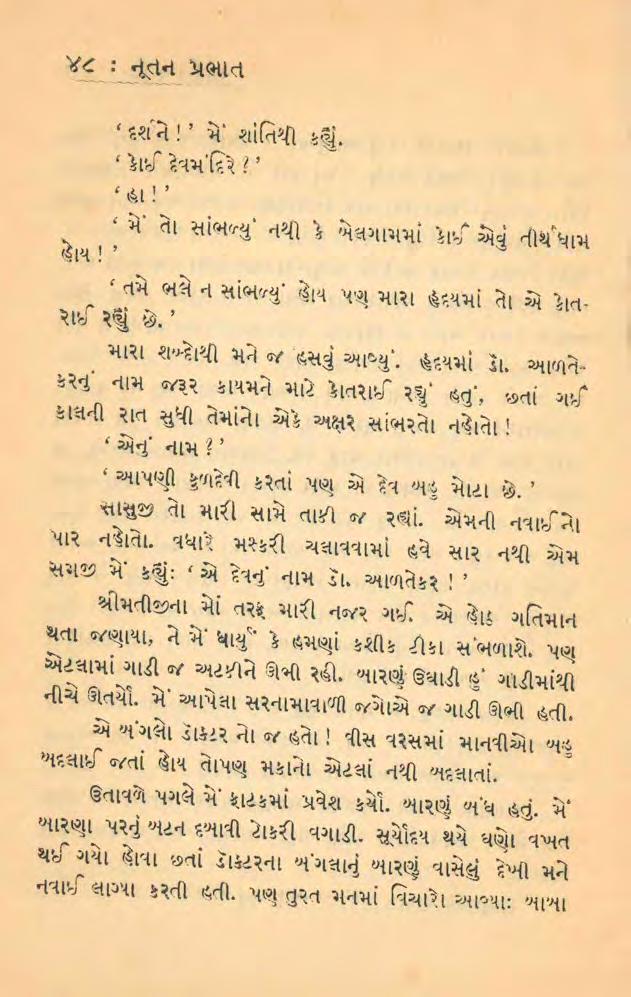 ૪૮ : નૂતન પ્રભાત
‘દર્શને!’ મેં શાંતિથી કહ્યું.
‘કોઈ દેવમંદિરે?’
‘હા!’
‘મેં તો સાંભળ્યું નથી કે બેલગામમાં કોઈ એવું તીર્થધામ
હોય!’
‘તમે ભલે ન સાંભળ્યું હોય પણ મારા હૃદયમાં તો એ કોત-
રાઈ રહ્યું છે.’
મારા શબ્દોથી મને જ હસવું આવ્યું. હૃદયમાં ડૉ. આળતે-
કરનું નામ જરૂર કાયમને માટે કોતરાઈ રહ્યું હતું, છતાં ગઈ
કાલની રાત સુધી તેમાંનો એકે અક્ષર સાંભરતો નહોતો!
‘એનું નામ?’
‘આપણી કુળદેવી કરતાં પણ એ દેવ બહુ મોટા છે.’
સાસુજી તો મારી સામે તાકી જ રહ્યાં. એમની નવાઈનો
પાર નહોતો. વધારે મશ્કરી ચલાવવામાં હવે સાર નથી એમ
સમજી મેં કહ્યું: ‘એ દેવનું નામ ડૉ. આળતેકર!’
શ્રીમતીજીના મોં તરફ મારી નજર ગઈ. એ હોઠ ગતિમાન
થતા જણાયા, ને મેં ધાર્યું કે હમણાં કશીક ટીકા સંભળાશે. પણ
એટલામાં ગાડી જ અટકીને ઊભી રહી. બારણું ઉઘાડી હું ગાડીમાંથી
નીચે ઊતર્યો. મેં આપેલા સરનામાવાળી જગોએ જ ગાડી ઊભી હતી.
એ બંગલો ડૉક્ટર નો જ હતો! વીસ વરસમાં માનવીઓ બહુ
બદલાઈ જતાં હોય તોપણ મકાનો એટલાં નથી બદલાતાં.
ઉતાવળે પગલે મેં ફાટકમાં પ્રવેશ કર્યો. બારણું બંધ હતું. મેં
બારણા પરનું બટન દબાવી ટોકરી વગાડી. સૂર્યોદય થયે ઘણો વખત
થઈ ગયો હોવા છતાં ડૉક્ટરના બંગલાનું બારણું વાસેલું દેખી મને
નવાઈ લાગ્યા કરતી હતી. પણ તુરત મનમાં વિચારો આવ્યા: બાબા